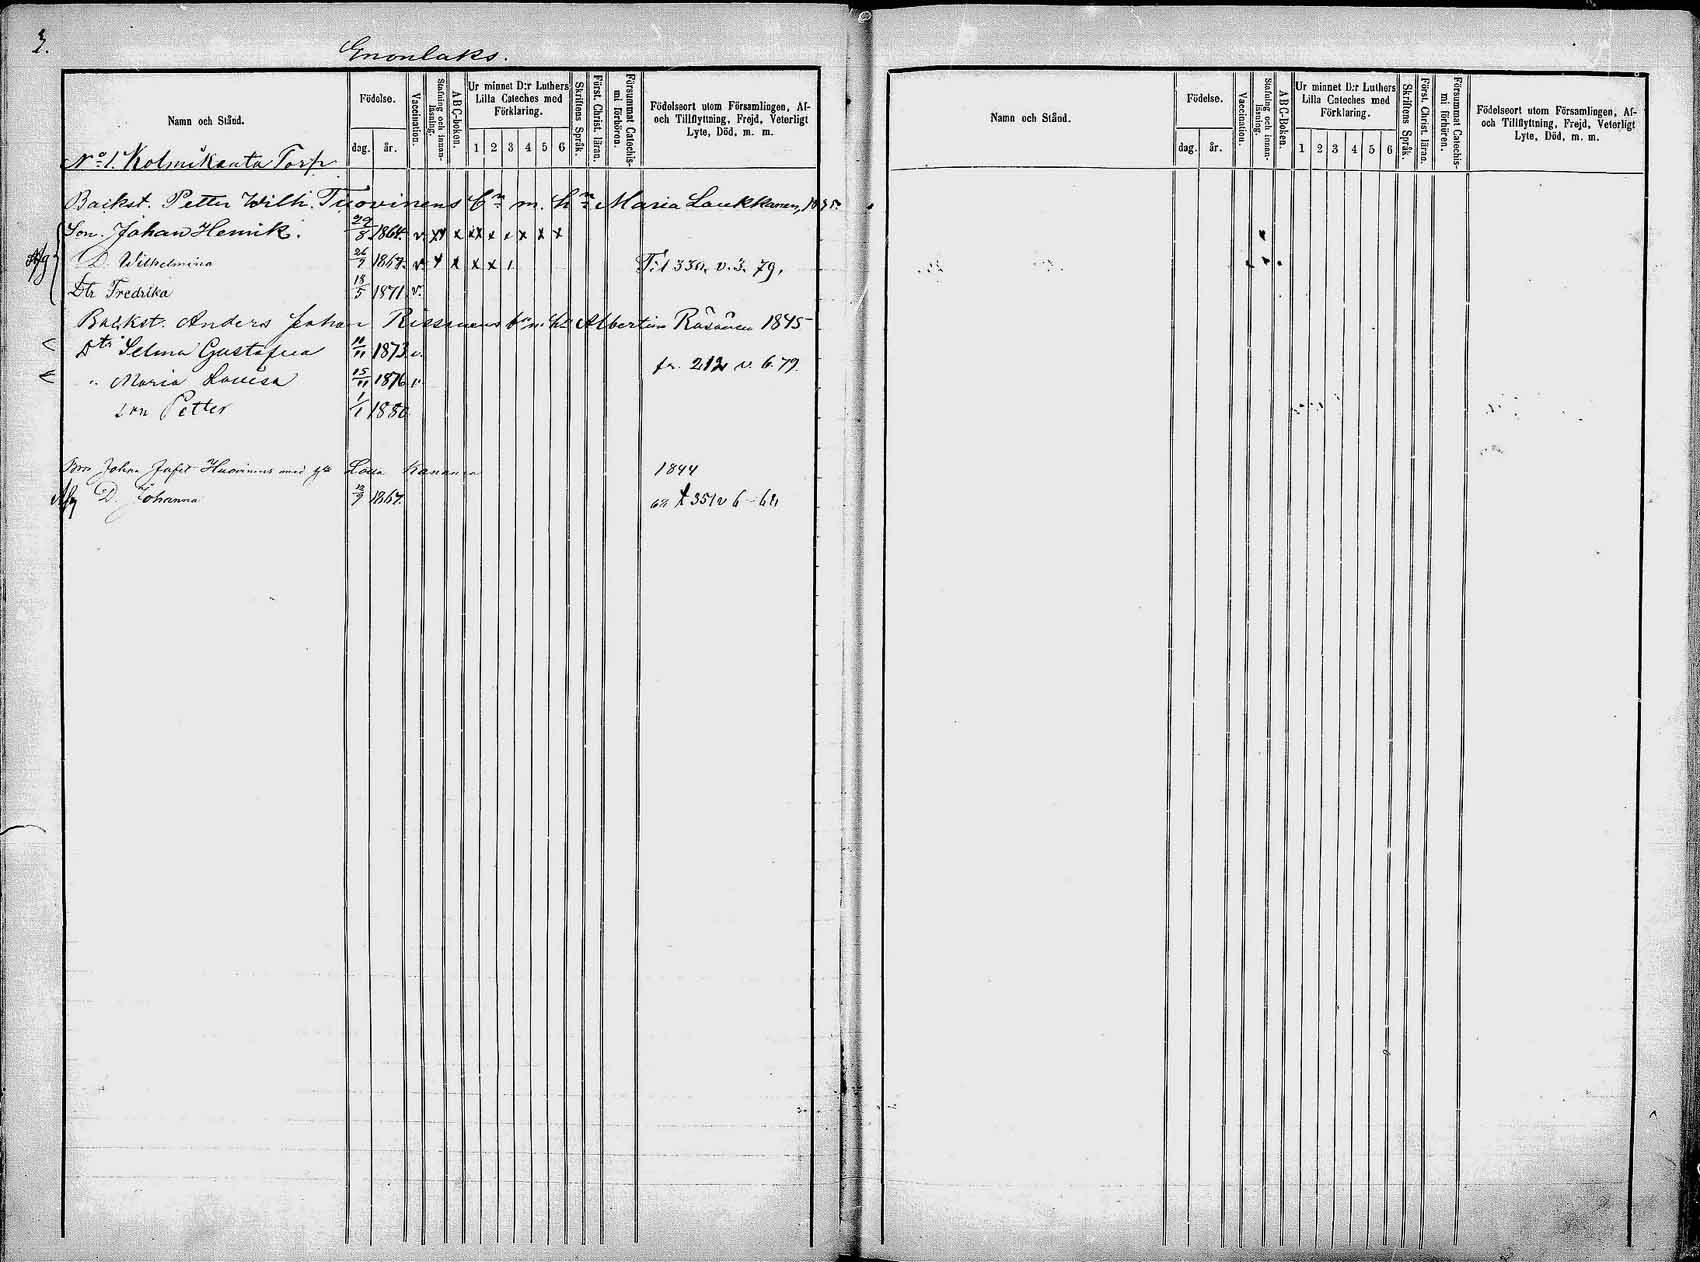 3.
Enonlaks.
Namn och Stånd.
Födelse.
dag. år.
Vaccination.
Stafning och innan-läsning.
ABC-boken.
Ur minnet D:r Luthers Lilla Cateches med Förklaring.
1 2 3 4 5 6
Skriftens Språk.
Först. Christ. läran.
Försummat Catechis-mi förhören.
Födelseort utom Församlingen, Af- och Tillflyttning, Frejd, Veterligt Lyte, Död, m. m.
No 1. Kolmikanta Torp
Backst. Petter Wilh. Tuovinens bn m. hn Maria Laukkanen,
Son. Johan Henrik. 29/8 1864. v. x x x x x x x x
Afg D. Wilhelmina 26/9 1867. v. x x x x Till 330. v. 3. 79.
Dtr Fredrika 18/5 1871 v.
Backst. Anders Johan Rissanens bn m. h. Albertina Räsänen 1845
Dtr Selma Gustafva 10/11 1873 v. fr. 212 v. 6. 79.
" Maria Lovisa 15/11 1876 v
son Petter 1/1 1880
Johan Jafet Huovinens med Lovisa 1844
Afg D. Johanna 12/9 1867. 351 v 6
Namn och Stånd.
Födelse.
dag. år.
Vaccination.
Stafning och innan-läsning.
ABC-Boken.
Ur minnet D:r Luthers Lilla Cateches med Förklaring.
1 2 3 4 5 6
Skriftens Språk.
Först. Christ. läran.
Försummat Catechis-mi förhören.
Födelseort utom Församlingen, Af- och Tillflyttning, Frejd, Veterligt Lyte, Död, m. m.